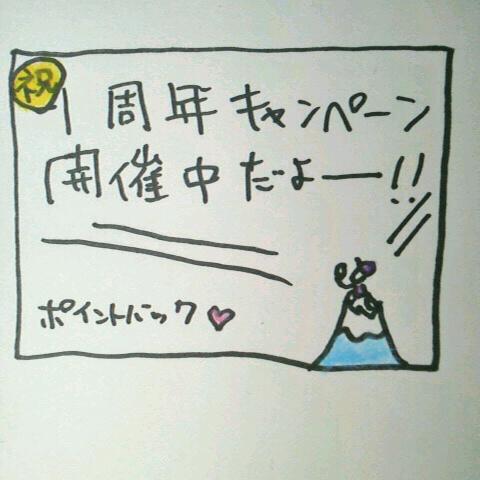 祝
1周年キャンペーン
開催中だよー!!
ポイントバック♡